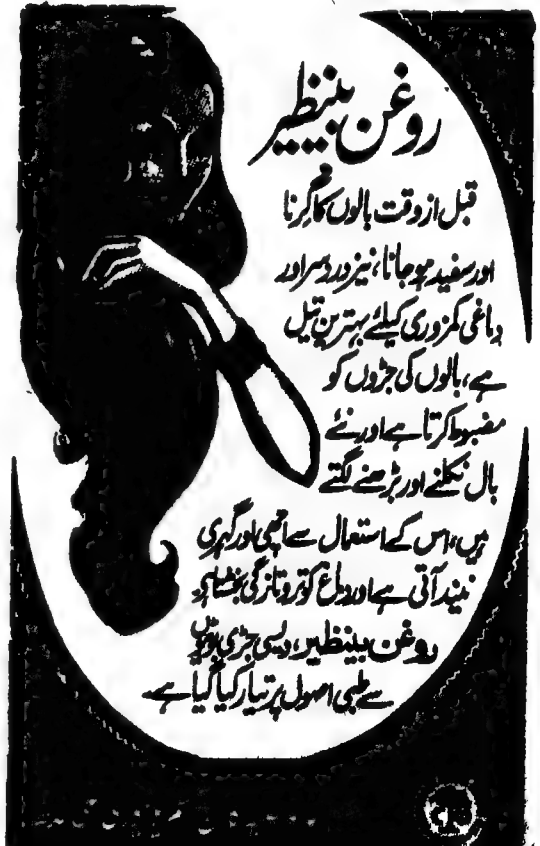 روغن بینظیر
قبل از وقت بالوں کا گرنا
اور سفید ہو جانا، نیز درد سر اور
دماغی کمزوری کیلئے بہترین تیل
ہے، بالوں کی جڑوں کو
مضبوط کرتا ہے اور نئے
بال نکلنے اور بڑھنے لگتے
ہیں، اس کے استعمال سے اچھی اور گہری
نیند آتی ہے اور دماغ کو تروتازگی بخشتا ہے
روغن بینظیر، دیسی جڑی بوٹیوں
سے طبی اصول پر تیار کیا گیا ہے۔